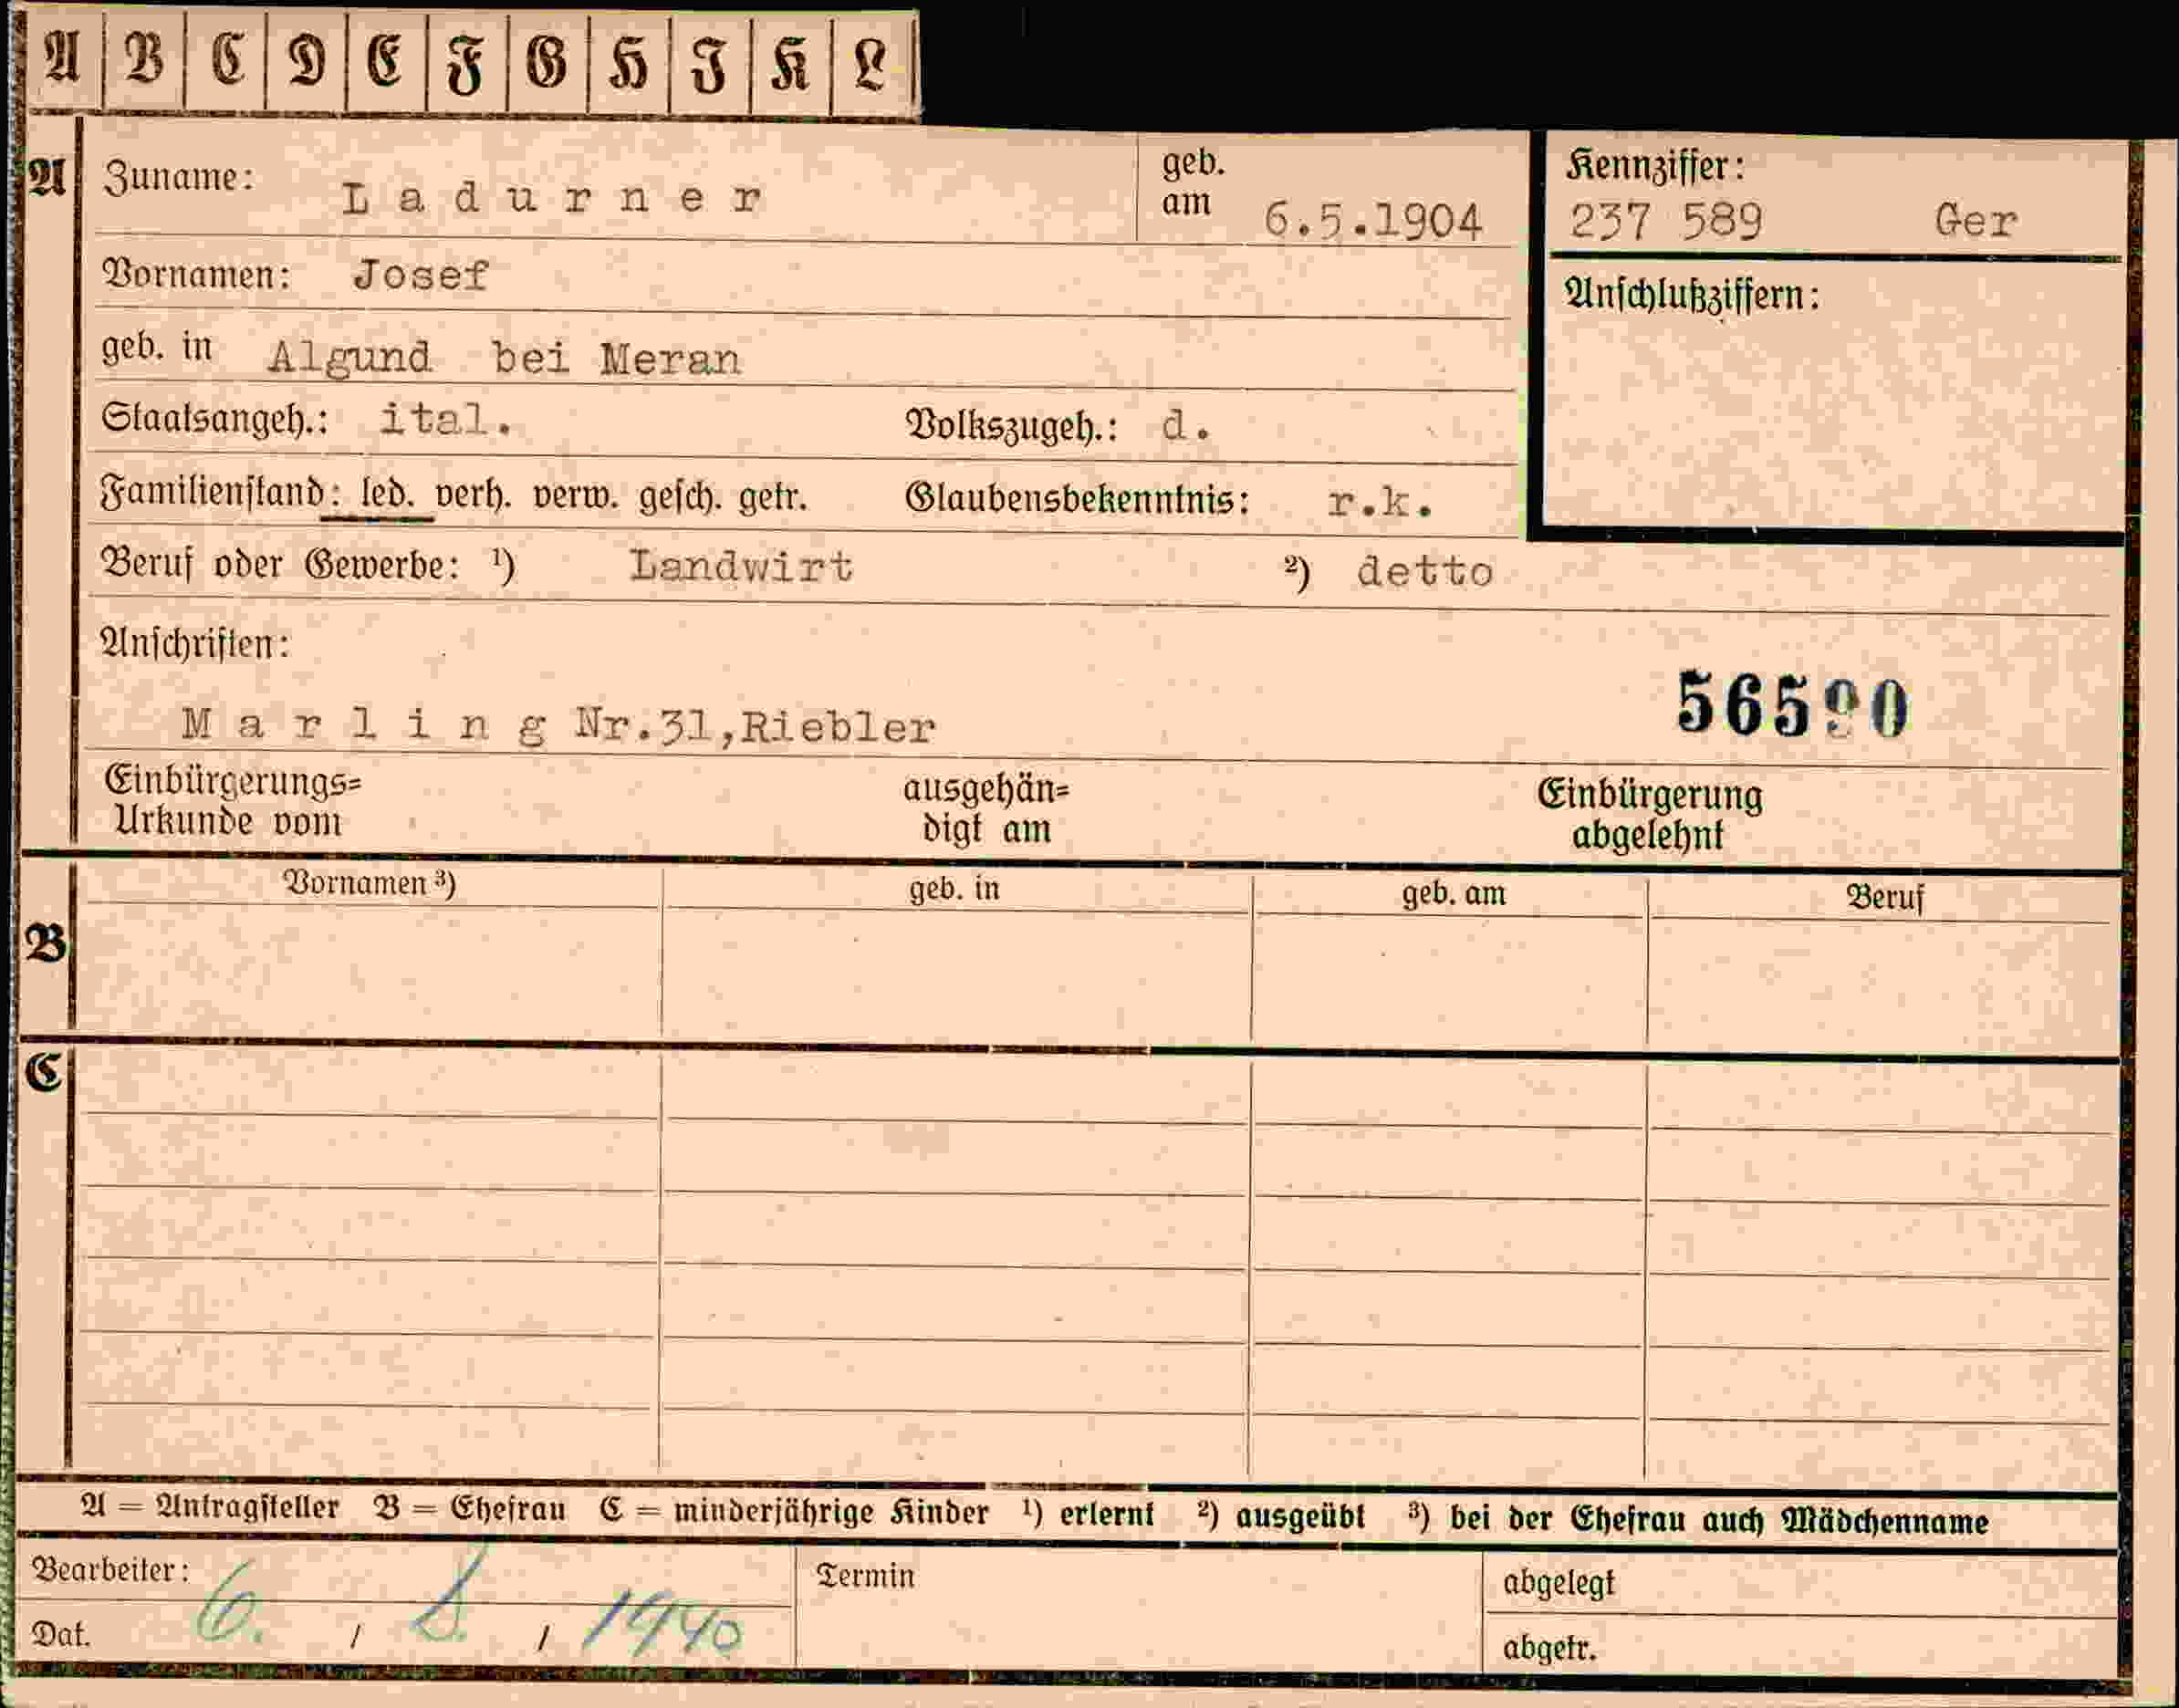 A B C D E F G H I K L
A Zuname: Ladurner geb. am 6.5.1904
Kennziffer:
237 589 Ger
Vornamen: Josef
Anschlußziffern:
geb. in Algund bei Meran
Staatsangeh.: ital. Volkszugeh.: d.
Familienstand: led. verh. verw. gesch. getr. Glaubensbekenntnis: r.k.
Beruf oder Gewerbe: ¹) Landwirt ²) detto
Anschriften:
Marling Nr.31,Riebler
56590
Einbürgerungs= ausgehän= Einbürgerung
Urkunde vom digt am abgelehnt
Vornamen ³) geb. in geb. am Beruf
B
C
A = Antragsteller B = Ehefrau C = minderjährige Kinder ¹) erlernt ²) ausgeübt ³) bei der Ehefrau auch Mädchenname
Bearbeiter: Termin abgelegt
Dat. 6. / / 1940 abgetr.